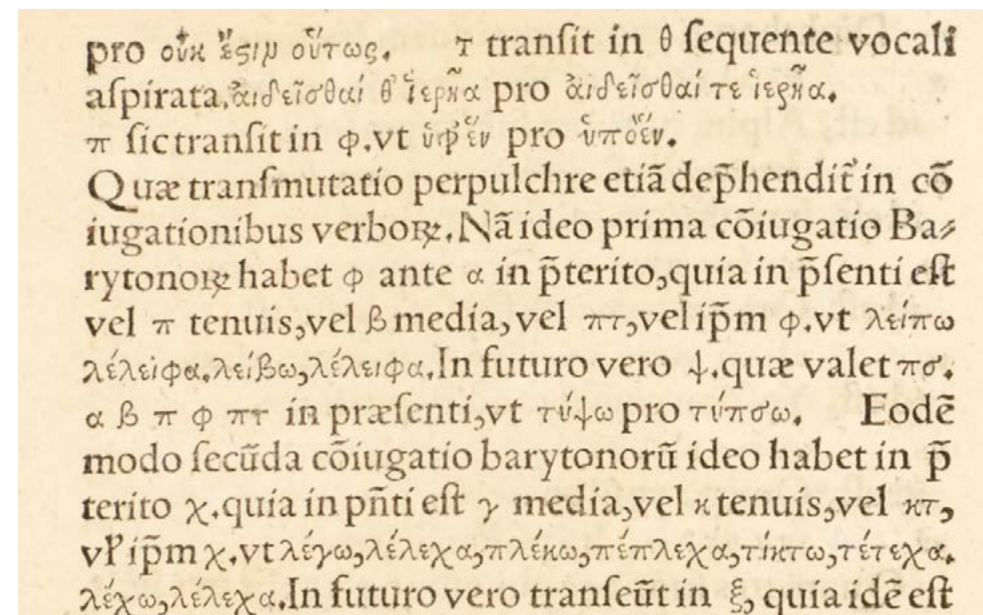 pro οὐκ ἔςιμ οὕτως. τ tranſit in θ ſequente vocali
aſpirata.ἀιδεῖσθαί θ' ἱερῆα pro ἀιδεῖσθαί τε ἱερῆα.
π ſic tranſit in φ.vt ὑφ' ἓν pro ὑπὸἕν.
Quæ tranſmutatio perpulchre etiã dep̃hendit᷑ in cõ
iugationibus verboꝝ. Nã ideo prima cõiugatio Ba⸗
rytonoꝝ habet φ ante α in p̃terito,quia in p̃ſenti eſt
vel π tenuis,vel β media, vel πτ,vel ip̃m φ.vt λείπω
λέλειφα.λείβω,λέλειφα.In futuro vero ψ.quæ valet πσ.
α β π φ πτ in præſenti,vt τύψω pro τύπσω. Eodẽ
modo ſecũda cõiugatio barytonorũ ideo habet in p̃
terito χ.quia in pñti eſt γ media,vel κ tenuis,vel κτ,
vl̓ ip̃m χ.vt λέγω,λέλεχα,πλέκω,πέπλεχα,τίκτω,τέτεχα.
λέχω,λέλεχα.In futuro vero tranſeũt in ξ, quia idẽ eſt